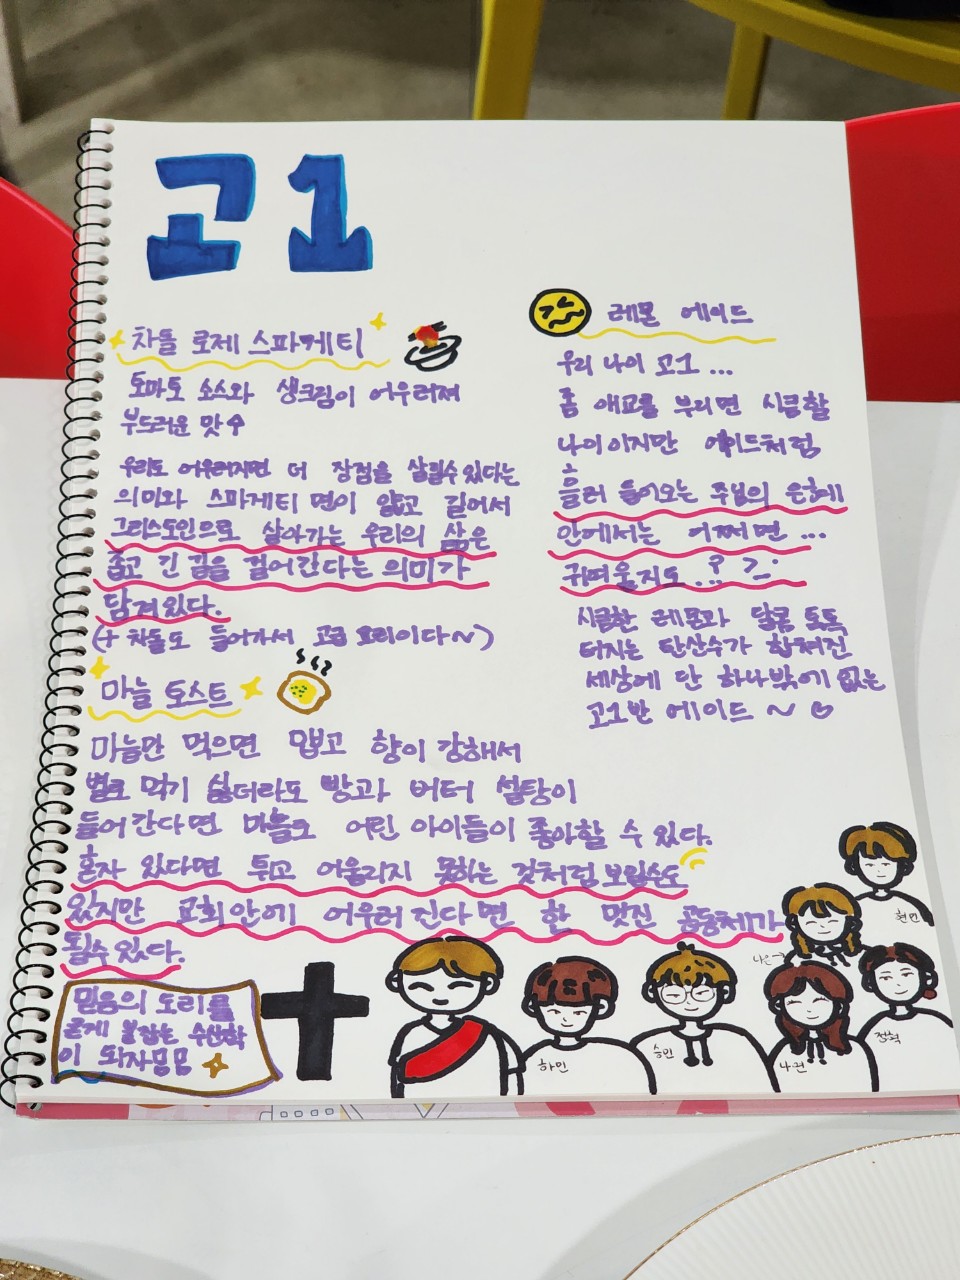 고1
차돌 로제 스파게티
토마토 소스와 생크림이 어우러져
부드러운 맛↑
우리도 어우러지면 더 장점을 살릴수있다는
의미와 스파게티 면이 얇고 길어서
그리스도인으로 살아가는 우리의 삶은
좁고 긴 길을 걸어간다는 의미가
담겨있다.
(+ 차돌도 들어가서 고급 요리이다~)
레몬 에이드
우리 나이 고1...
좀 애교를 부리면 시큼할
나이이지만 에이드처럼
흘러 들어오는 주님의 은혜
안에서는 어쩌면...
귀여울지도..? >_·
시큼한 레몬과 달콤 톡톡
터지는 탄산수가 합쳐진
세상에 단 하나밖에 없는
고1반 에이드 ~ ♡
마늘 토스트
마늘만 먹으면 맵고 향이 강해서
별로 먹기 싫더라도 빵과 버터 설탕이
들어간다면 마늘로 어린 아이들이 좋아할 수 있다.
혼자 있다면 튀고 어울리지 못하는 것처럼 보일수도
있지만 교회안에 어우러진다면 한 멋진 공동체가
될수있다.
믿음의 도리를
굳게 붙잡는 수산학
이 되자
현민
나은→
하민
승민
나권
정혁